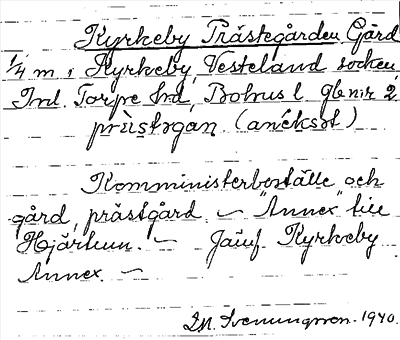 Kyrkeby Prästegården Gård
1/4 m i Kyrkeby, Vesteland socken
Inl. Torpe hd, Bohus l. gb nr 2
(anékset)
Komministerboställe och
gård, prästgård. — "Annex" till
Hjärtum. — Jämf. Kyrkeby
Annex. —
Sveningsson. 1940.